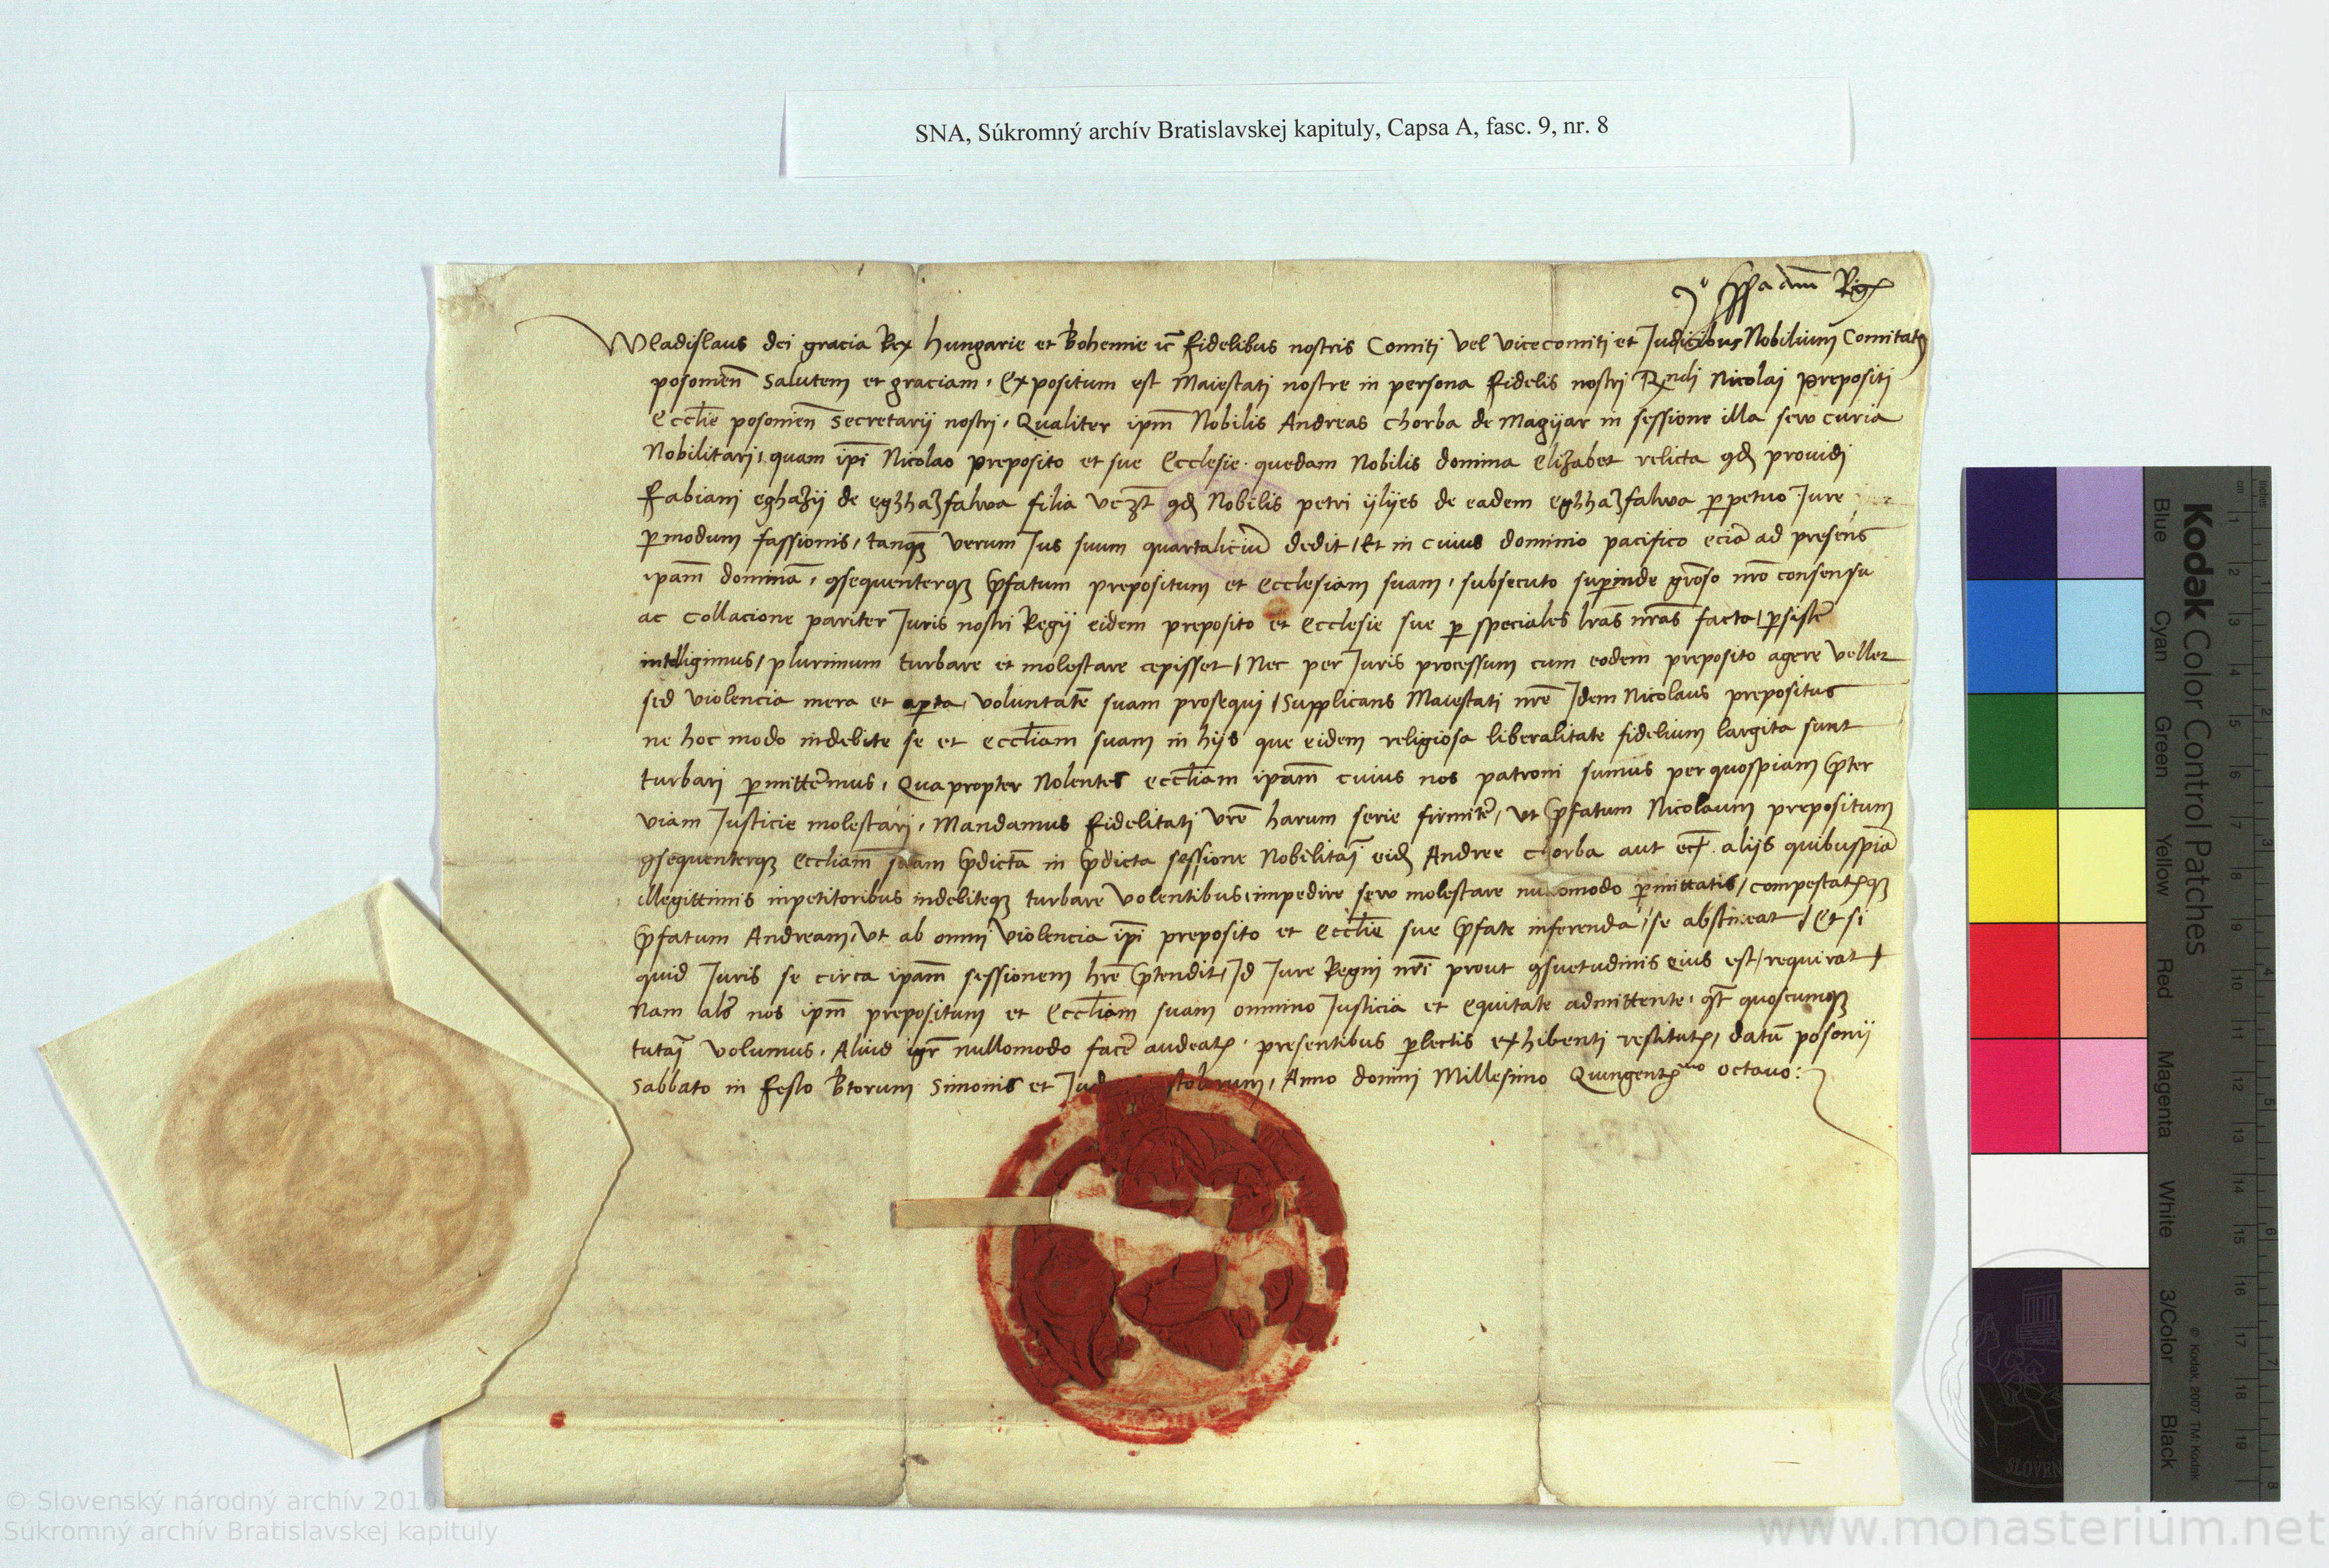 SNA, Súkromný archív Bratislavskej kapituly, Capsa A, fasc. 9, nr. 8
Wladislaus dei gracia Rex Hungarie et Bohemie fidelibus nostris Comiti vel vicecomiti et Judicibus Nobilium Comitatus
posonien̄ salutem et graciam, Expositum est Maiestati nostre in persona fidelis nostri Rndi Nicolai prepositi
Eccl̄ie posonien̄ secretarij nostri, Qualiter ip̄m Nobilis Andreas Chorba de Magijar in sessione illa sew curia
Nobilitari, quam ip̄i Nicolao preposito et sue Ecclesie quedam Nobilis domina Elizabet relicta qd prouidi
Fabiani eghazij de eghhazfalwa filia qd Nobilis petri ijlijes de eadem eghhazfalwa p̱petuo Jure
p̱ modum fassionis, tanqꝫ verum Jus suum quartaliciū dedit, Et in cuius dominio pacifico eciā ad presens
ip̄am dominā, ꝯsequenterqꝫ p̄fatum prepositum et Ecclesiam suam, subsecuto sup̱inde gr̄oso nr̄o consensu
ac Collacione pariter Juris nostri Regij eidem preposito et Ecclesie sue p̱ speciales lr̄as nr̄as facta, p̱sister̄
intelligimus, plurimum turbare et molestare cepisset, Nec per Juris processum cum eodem preposito agere vellet
sed violencia mera et ap̱ta, voluntatē suam prosequi, Supplicans Maiestati nr̄e Jdem Nicolaus prepositus
ne hoc modo indebite se et eccl̄iam suam in hijs que eidem religiosa liberalitate fidelium largita sunt
turbari p̱mitterm̄us, Quapropter Nolentes eccl̄iam ip̄am cuius nos patroni sumus per quospiam p̄ter
viam Justicie molestari, Mandamus fidelitati vr̄e harum serie firmiter̄, vt p̄fatum Nicolaum prepositum
ꝯsequenterqꝫ Eccl̄iam suam p̄dictā in p̄dicta sessione Nobilitar̄ eid Andree Chorba aut alijs quibuspiā
illegittimis inpetitoribus indebiteqꝫ turbare volentibus, impedire sew molestare nullomodo p̱mittatis, compescatisqꝫ
p̄fatum Andream, vt ab omni violencia ip̄i preposito et Eccl̄ie sue p̄fate inferenda, se abstineat, Et si
quid Juris se circa ip̄am sessionem hr̄e p̄tendit, Jd Jure Regni nr̄i prout ꝯsuetudinis eius est, requirat
Nam al̄r nos ip̄m prepositum et Eccl̄iam suam omnino Justicia et equitate admittente, quoscumqꝫ
tutari volumus, Aliud igr̄ nullomodo facer̄e audeatis, presentibus p̱lectis exhibenti restitutis, datū posonij
Sabbato in festo Btorum Simonis et Jud stolorum, Anno domini Millesimo Quingentᵐᵒ octauo:
Kodak Color Control Patches
Blue Cyan Green Yellow Red Magenta White 3/Color Black
© Kodak, 2007 TM: Kodak
© Slovenský národný archív 2010
Súkromný archív Bratislavskej kapituly
www.monasterium.net